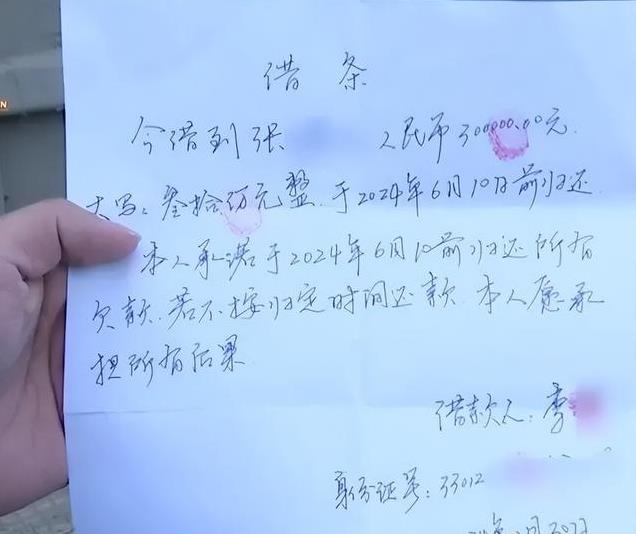 借条
今借到张 人民币300000.00元
大写：叁拾万元整 于2024年6月10日前归还
本人承诺于2024年6月10前归还所有
欠款.若不按归定时间还款.本人愿承
担所有后果
借款人：李
身份证号：33012